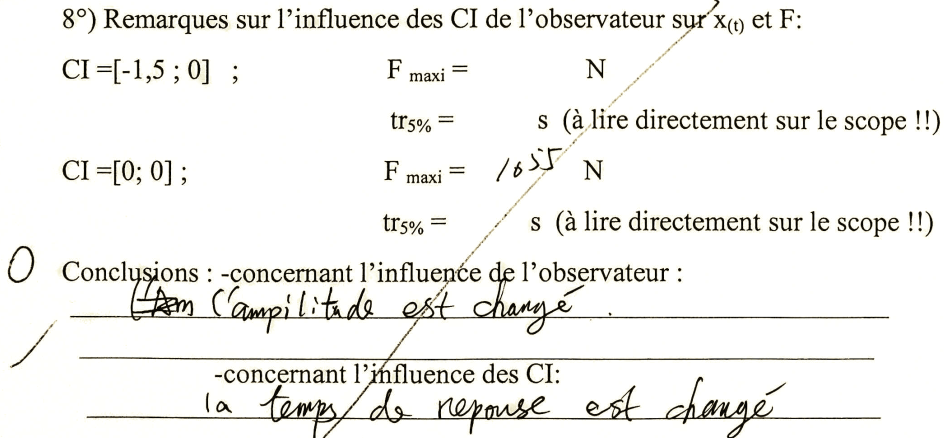 8°) Remarques sur l'influence des CI de l'observateur sur x(t) et F:
CI =[-1,5 ; 0] ; F maxi = N
tr5% = s (à lire directement sur le scope !!)
CI =[0; 0] ; F maxi = 1055 N
tr5% = s (à lire directement sur le scope !!)
0 Conclusions : -concernant l'influence de l'observateur :
l'ampilitude est changé.
-concernant l'influence des CI:
la temps de reponse est changé